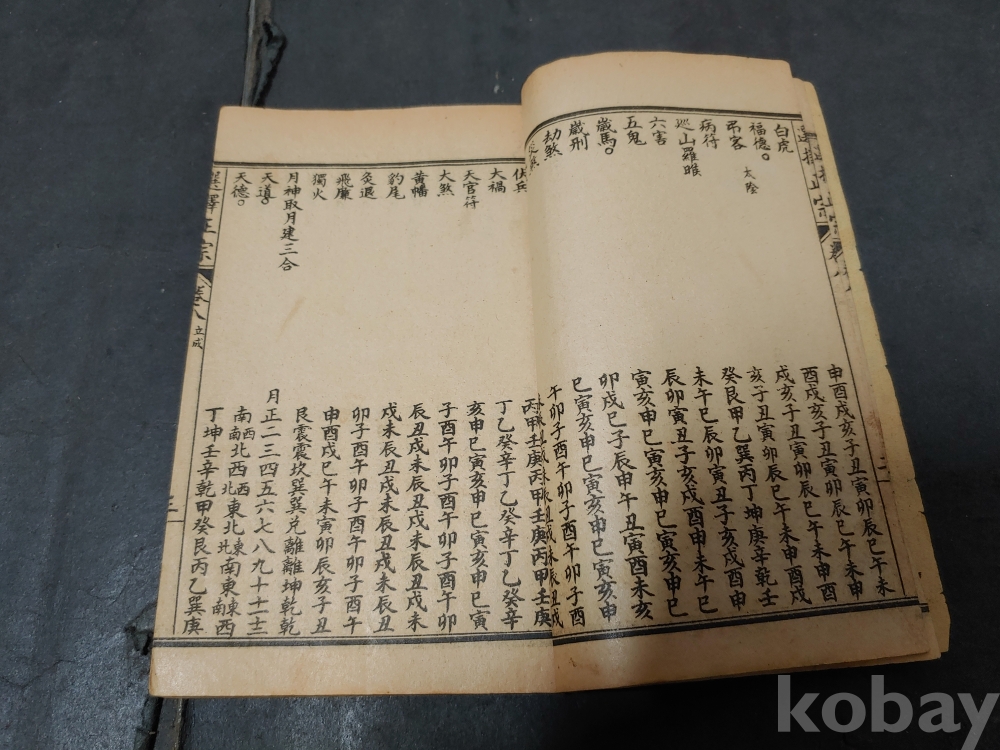 白虎 申酉戌亥子丑寅卯辰巳午未
福德。太陰 酉戌亥子丑寅卯辰巳午未申
弔客 戌亥子丑寅卯辰巳午未申酉
病符 亥子丑寅卯辰巳午未申酉戌
巡山羅睺 癸艮甲乙巽丙丁坤庚辛乾壬
六害 未午巳辰卯寅丑子亥戌酉申
五鬼 辰卯寅丑子亥戌酉申未午巳
歲馬。 寅亥申巳寅亥申巳寅亥申巳
歲刑 卯戌巳子辰申午丑寅酉未亥
劫煞 巳寅亥申巳寅亥申巳寅亥申
午卯子酉午卯子酉午卯子酉
伏兵 丙甲壬庚丙甲壬庚丙甲壬庚
大禍 丁乙癸辛丁乙癸辛丁乙癸辛
天官符 亥申巳寅亥申巳寅亥申巳寅
大煞 子酉午卯子酉午卯子酉午卯
黃幡 辰丑戌未辰丑戌未辰丑戌未
豹尾 戌未辰丑戌未辰丑戌未辰丑
灸退 卯子酉午卯子酉午卯子酉午
飛廉 申酉戌巳午未寅卯辰亥子丑
獨火 艮震震坎巽巽兌離離坤乾乾
月神取月建三合 月正二三四五六七八九十十一十二
天道。 南西南北西西北東北北東南東東南西
天德。 丁坤壬辛乾甲癸艮丙乙巽庚
選擇正宗 卷八 立成 三
kobay